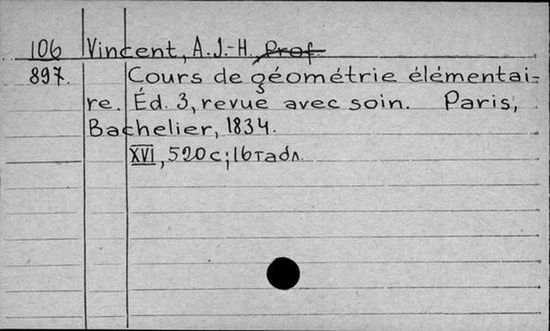 106 Vincent, A. J.-H. Prof.
897. Cours de géométrie élémentai=
re. Éd. 3, revue avec soin. Paris,
Bachelier, 1834.
XVI, 520 с; 16 табл.